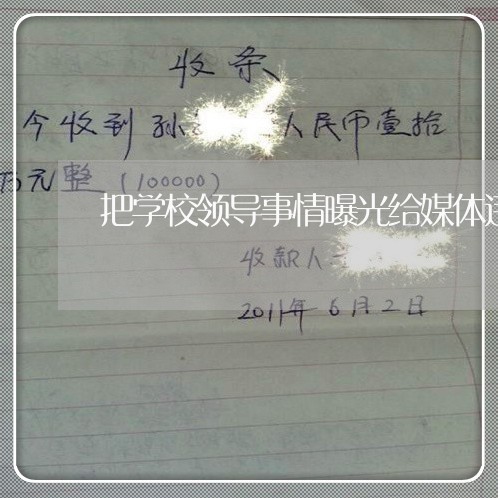 收条
今收到孙 人民币壹拾
万元整（100000）
把学校领导事情曝光给媒体
收款人
2011年6月2日